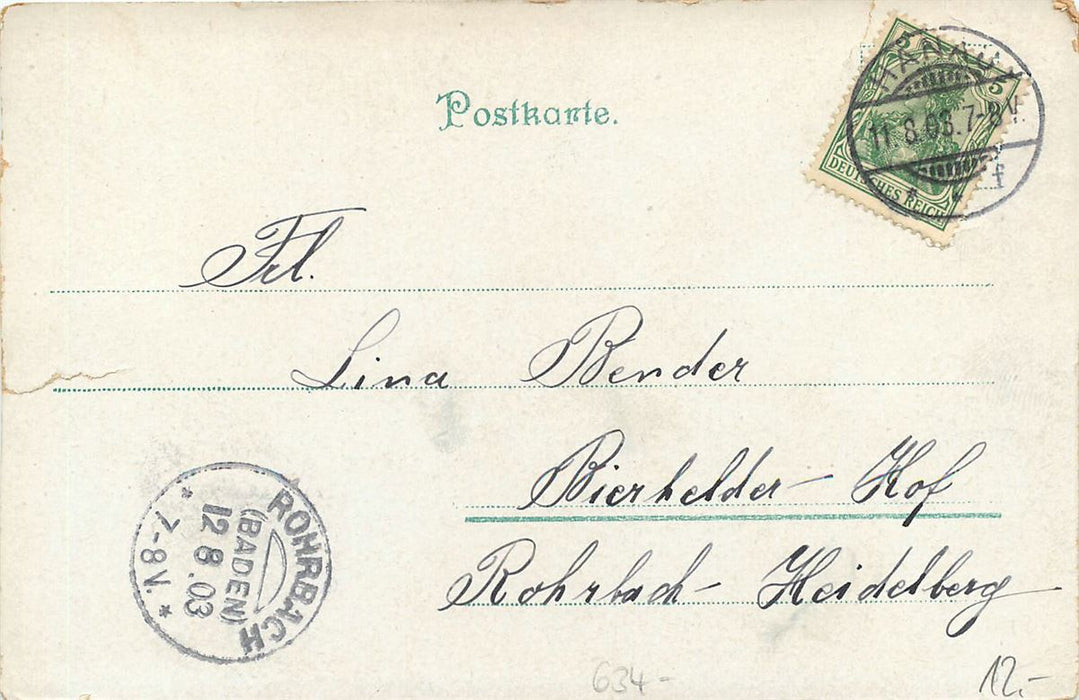 Postkarte.
5 5
DEUTSCHES REICH
HANAU
11.8.03.7-8V.
f
Frl.
Lina Bender
Bierhelder- Hof
Rohrbach- Heidelberg
ROHRBACH
(BADEN)
12.8.03
* 7-8V. *
634-
12.-